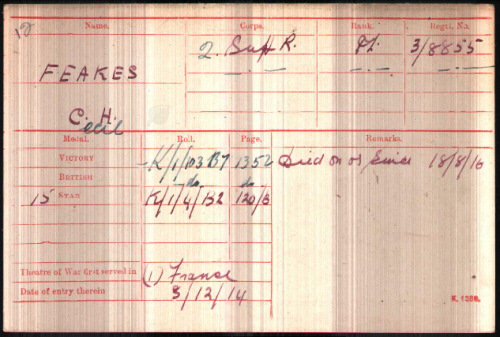 Name. Corps. Rank. Regtl. No.
2. Suff R. Pt. 3/8855
FEAKES
C. H.
ecil
Medal. Roll. Page. Remarks.
VICTORY K/1/103B7 1352 Died on or since 18/8/16
BRITISH do do
15 STAR K/1/4/B2 120/6
Theatre of War first served in (1) France
Date of entry therein 3/12/14
K. 1380.